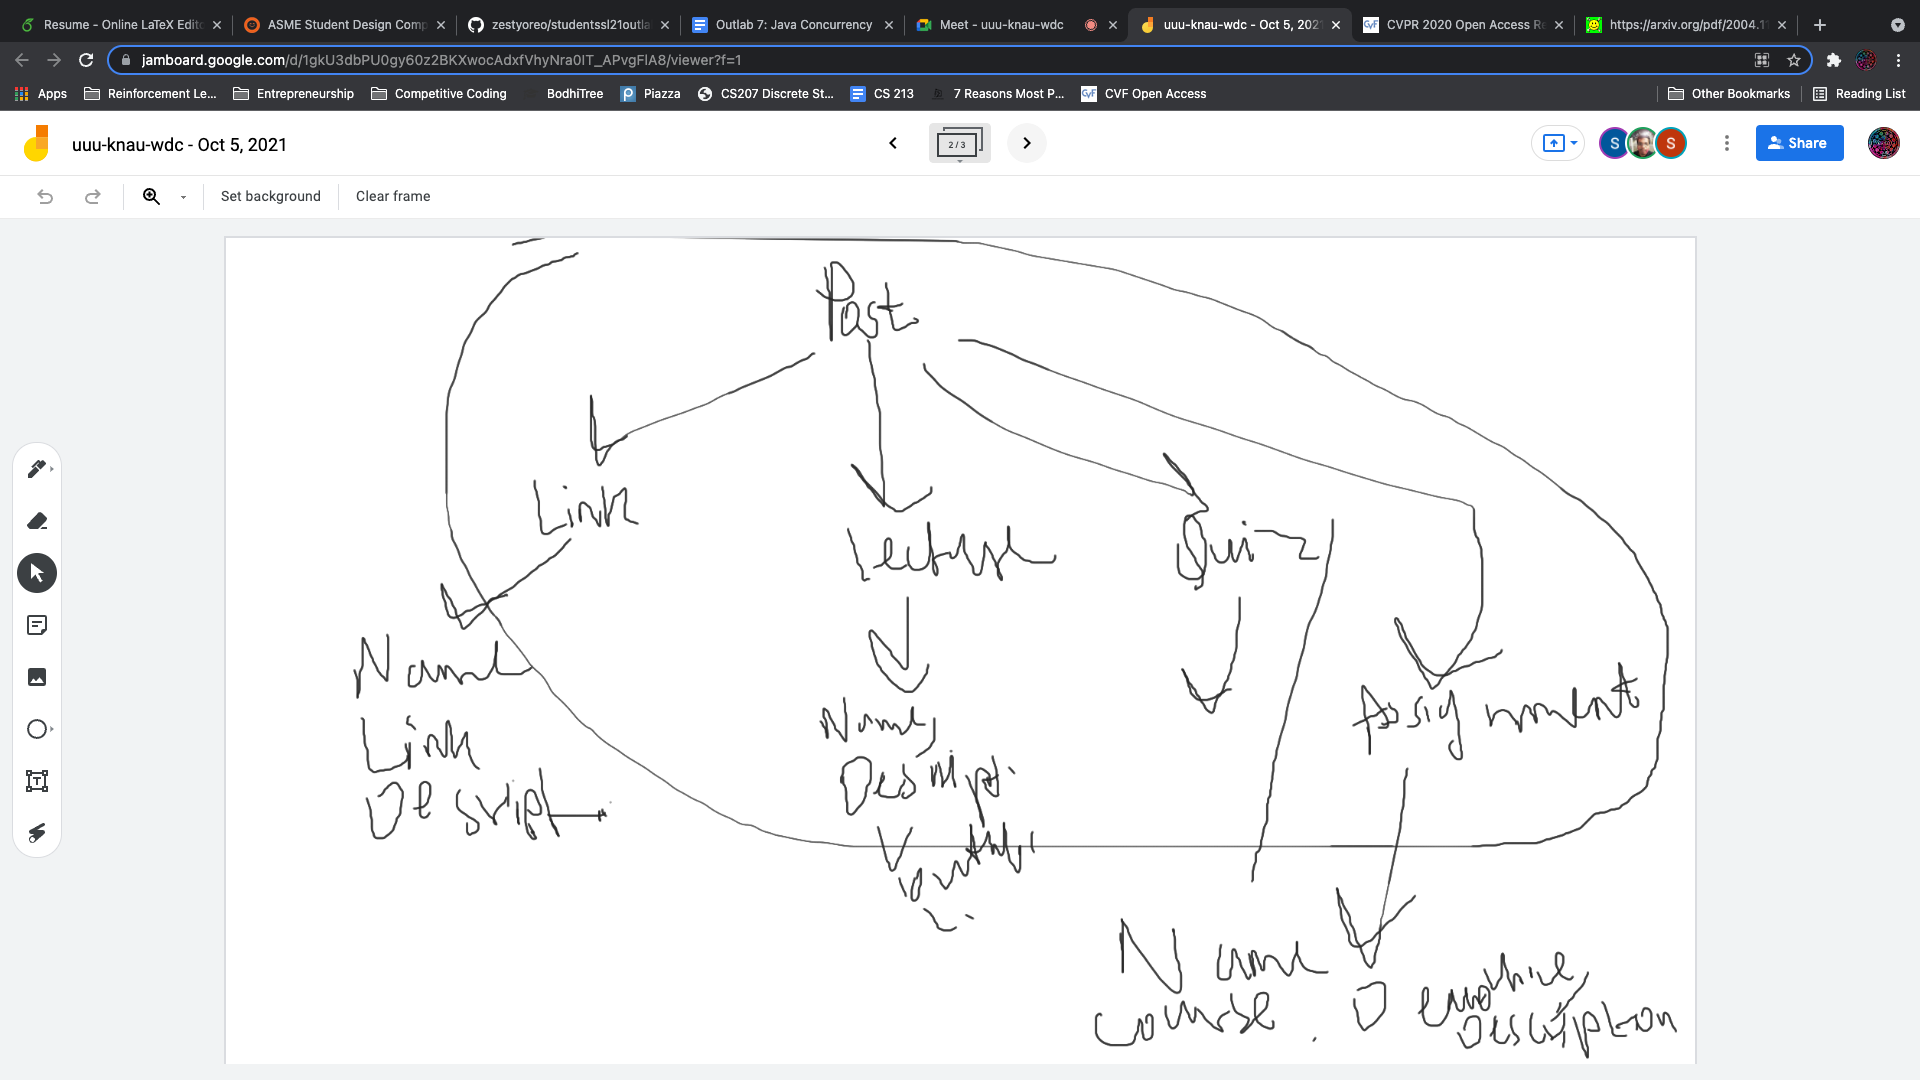 Resume - Online LaTeX Edit
ASME Student Design Comp
zestyoreo/studentssl21outla
Outlab 7: Java Concurrency
Meet - uuu-knau-wdc
uuu-knau-wdc - Oct 5, 2021
CVPR 2020 Open Access Re
https://arxiv.org/pdf/2004.11
jamboard.google.com/d/1gkU3dbPU0gy60z2BKXwocAdxfVhyNra0IT_APvgFlA8/viewer?f=1
Apps
Reinforcement Le...
Entrepreneurship
Competitive Coding
BodhiTree
Piazza
CS207 Discrete St...
CS 213
7 Reasons Most P...
CVF Open Access
Other Bookmarks
Reading List
uuu-knau-wdc - Oct 5, 2021
2 / 3
S
S
Share
Set background
Clear frame
Post
Link
Lecture
Quiz
Assignment
Name
Link
Descript
Name,
Descript.
Name
course.
Description